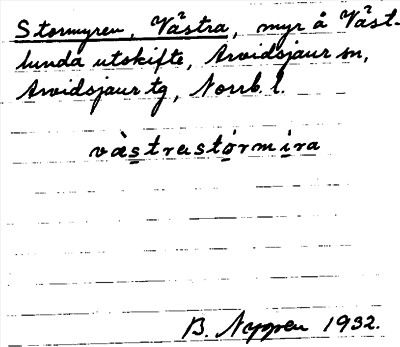 Stormyren, Västra, myr å Väst-
lunda utskifte, Arvidsjaur sn,
Arvidsjaur tg, Norrb. l.
vàstrastórmira
B. Nygren 1932.